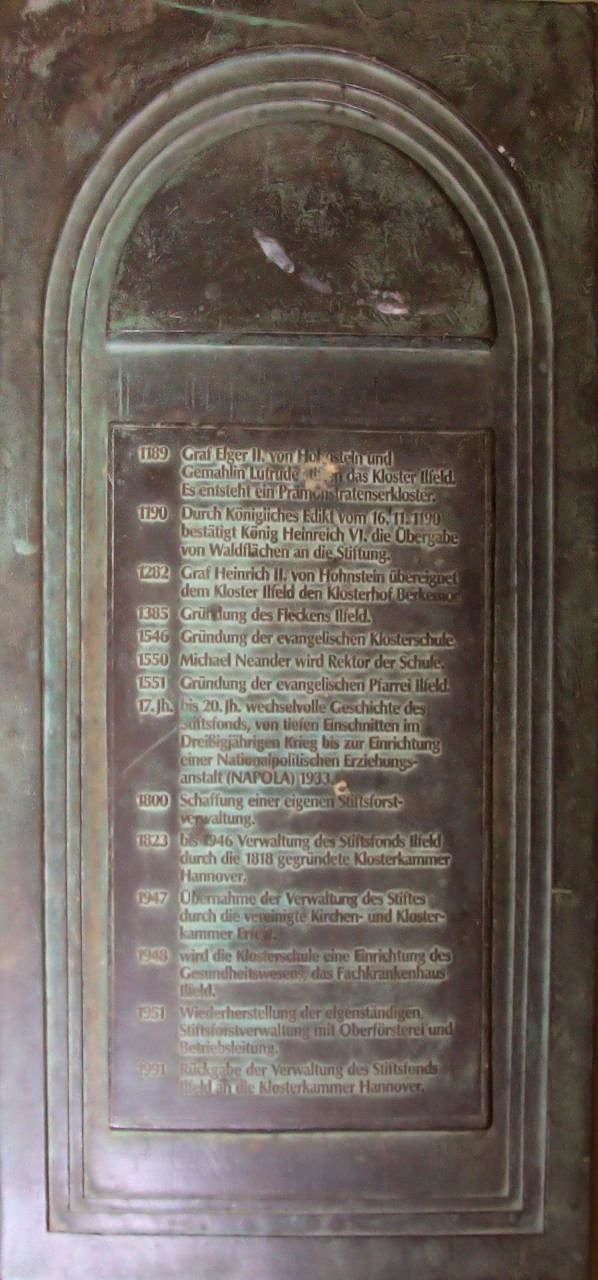 1189 Graf Elger II. von Hohnstein und
Gemahlin Lutrude das Kloster Ilfeld.
Es entsteht ein Prämonstratenserkloster.
1190 Durch Königliches Edikt vom 16.11.1190
bestätigt König Heinreich VI. die Übergabe
von Waldflächen an die Stiftung.
1282 Graf Heinrich II. von Hohnstein übereignet
dem Kloster Ilfeld den Klosterhof
1385 Gründung des Fleckens Ilfeld.
1546 Gründung der evangelischen Klosterschule
1550 Michael Neander wird Rektor der Schule.
1551 Gründung der evangelischen Pfarrei Ilfeld.
17.Jh. bis 20. Jh. wechselvolle Geschichte des
Stiftsfonds, von tiefen Einschnitten im
Dreißigjährigen Krieg bis zur Einrichtung
einer Nationalpolitischen Erziehungs-
anstalt (NAPOLA) 1933.
1800 Schaffung einer eigenen Stiftsforst-
verwaltung.
1823 bis 1946 Verwaltung des Stiftsfonds Ilfeld
durch die 1818 gegründete Klosterkammer
Hannover.
1947 Übernahme der Verwaltung des Stiftes
durch die vereinigte Kirchen- und Kloster-
kammer Erfurt.
1948 wird die Klosterschule eine Einrichtung des
Gesundheitswesens, das Fachkrankenhaus
Ilfeld.
1951 Wiederherstellung der eigenständigen
Stiftsforstverwaltung mit Oberförsterei und
Betriebsleitung.
1991 Rückgabe der Verwaltung des Stiftsfonds
Ilfeld an die Klosterkammer Hannover.